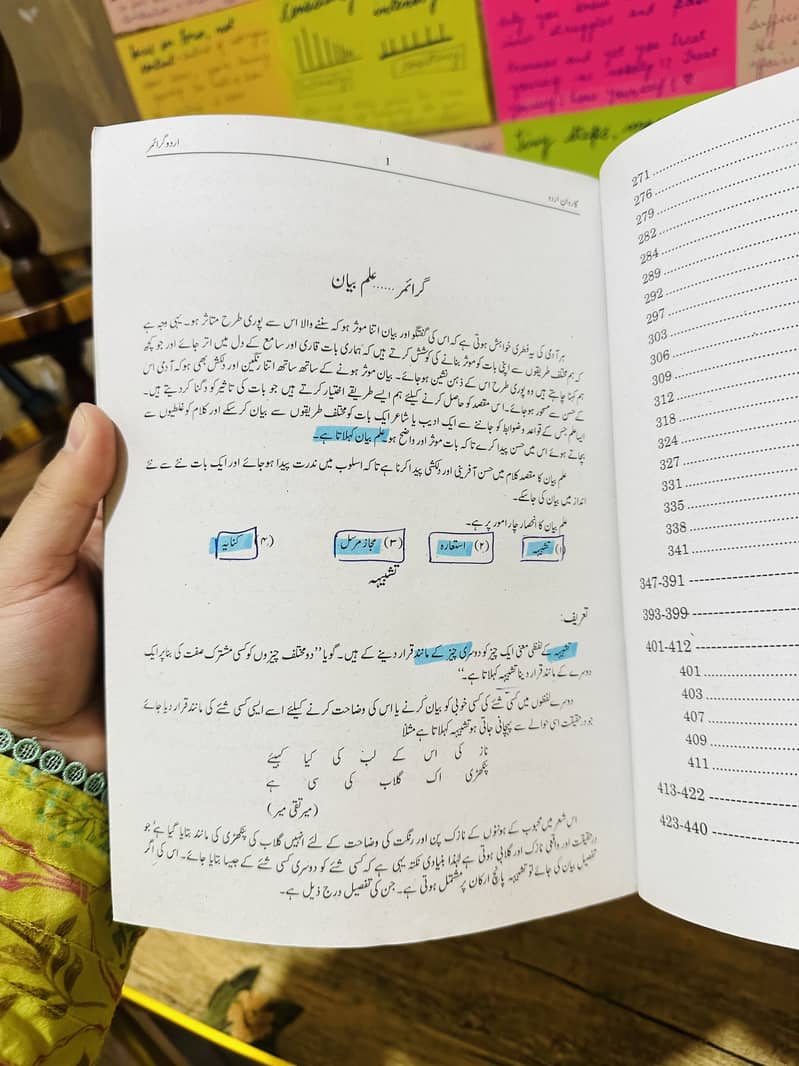 Focus on form, not
Consistency
intensity
why you know
struggled and
and yet you treat
yourself so
yourself. Love yourself!
Tiny steps,
اردو گرائمر
1
کاروانِ اردو
گرائمر......علم بیان
ہر آدمی کی یہ فطری خواہش ہوتی ہے کہ اس کی گفتگو اور بیان اتنا موثر ہو کہ سننے والا اس سے پوری طرح متاثر ہو۔ یہی وجہ ہے
کہ ہم مختلف طریقوں سے اپنی بات کو موثر بنانے کی کوشش کرتے ہیں کہ ہماری بات قاری اور سامع کے دل میں اتر جائے اور جو کچھ
ہم کہنا چاہتے ہیں وہ پوری طرح اس کے ذہن نشین ہو جائے۔ بیان موثر ہونے کے ساتھ ساتھ اتنا رنگین اور دلکش بھی ہو کہ آدمی اس
کے حسن سے مسحور ہو جائے۔ اس مقصد کو حاصل کرنے کیلئے ہم ایسے طریقے اختیار کرتے ہیں جو بات کی تاثیر کو دگنا کر دیتے ہیں۔
ایسا علم جس کے قواعد و ضوابط کو جاننے سے ایک ادیب یا شاعر ایک بات کو مختلف طریقوں سے بیان کر سکے اور کلام کو غلطیوں سے
بچاتے ہوئے اس میں حسن پیدا کرے تاکہ بات موثر اور واضح ہو علم بیان کہلاتا ہے۔
علم بیان کا مقصد کلام میں حسن آفرینی اور دلکشی پیدا کرنا ہے تاکہ اسلوب میں ندرت پیدا ہو جائے اور ایک بات نئے سے نئے
انداز میں بیان کی جا سکے۔
علم بیان کا انحصار چار امور پر ہے۔
(۱) تشبیہہ (۲) استعارہ (۳) مجاز مرسل (۴) کنایہ
تشبیہہ
تعریف:
تشبیہہ کے لفظی معنی ایک چیز کو دوسری چیز کے مانند قرار دینے کے ہیں۔ گویا "دو مختلف چیزوں کو کسی مشترک صفت کی بنا پر ایک
دوسرے کے مانند قرار دینا تشبیہہ کہلاتا ہے۔"
دوسرے لفظوں میں کسی شئے کی کسی خوبی کو بیان کرنے یا اس کی وضاحت کرنے کیلئے اسے ایسی کسی شئے کی مانند قرار دیا جائے
جو درحقیقت اسی حوالے سے پہچانی جاتی ہو تشبیہہ کہلاتا ہے مثلاً
ناز کی اس کے لب کی کیا کہیئے
پنکھڑی اک گلاب کی سی ہے
(میر تقی میر)
اس شعر میں محبوب کے ہونٹوں کے نازک پن اور رنگت کی وضاحت کے لئے انہیں گلاب کی پنکھڑی کی مانند بتایا گیا ہے جو
درحقیقت اور واقعی نازک اور گلابی ہوتی ہے لہٰذا بنیادی نکتہ یہی ہے کہ کسی شئے کو دوسری کسی شئے کے جیسا بتایا جائے۔ اس کی اگر
تفصیل بیان کی جائے تو تشبیہہ پانچ ارکان پر مشتمل ہوتی ہے۔ جن کی تفصیل درج ذیل ہے۔
271
276
279
282
284
289
292
297
303
306
309
312
318
324
327
331
335
338
341
347-391
393-399
401-412
401
403
407
409
411
413-422
423-440